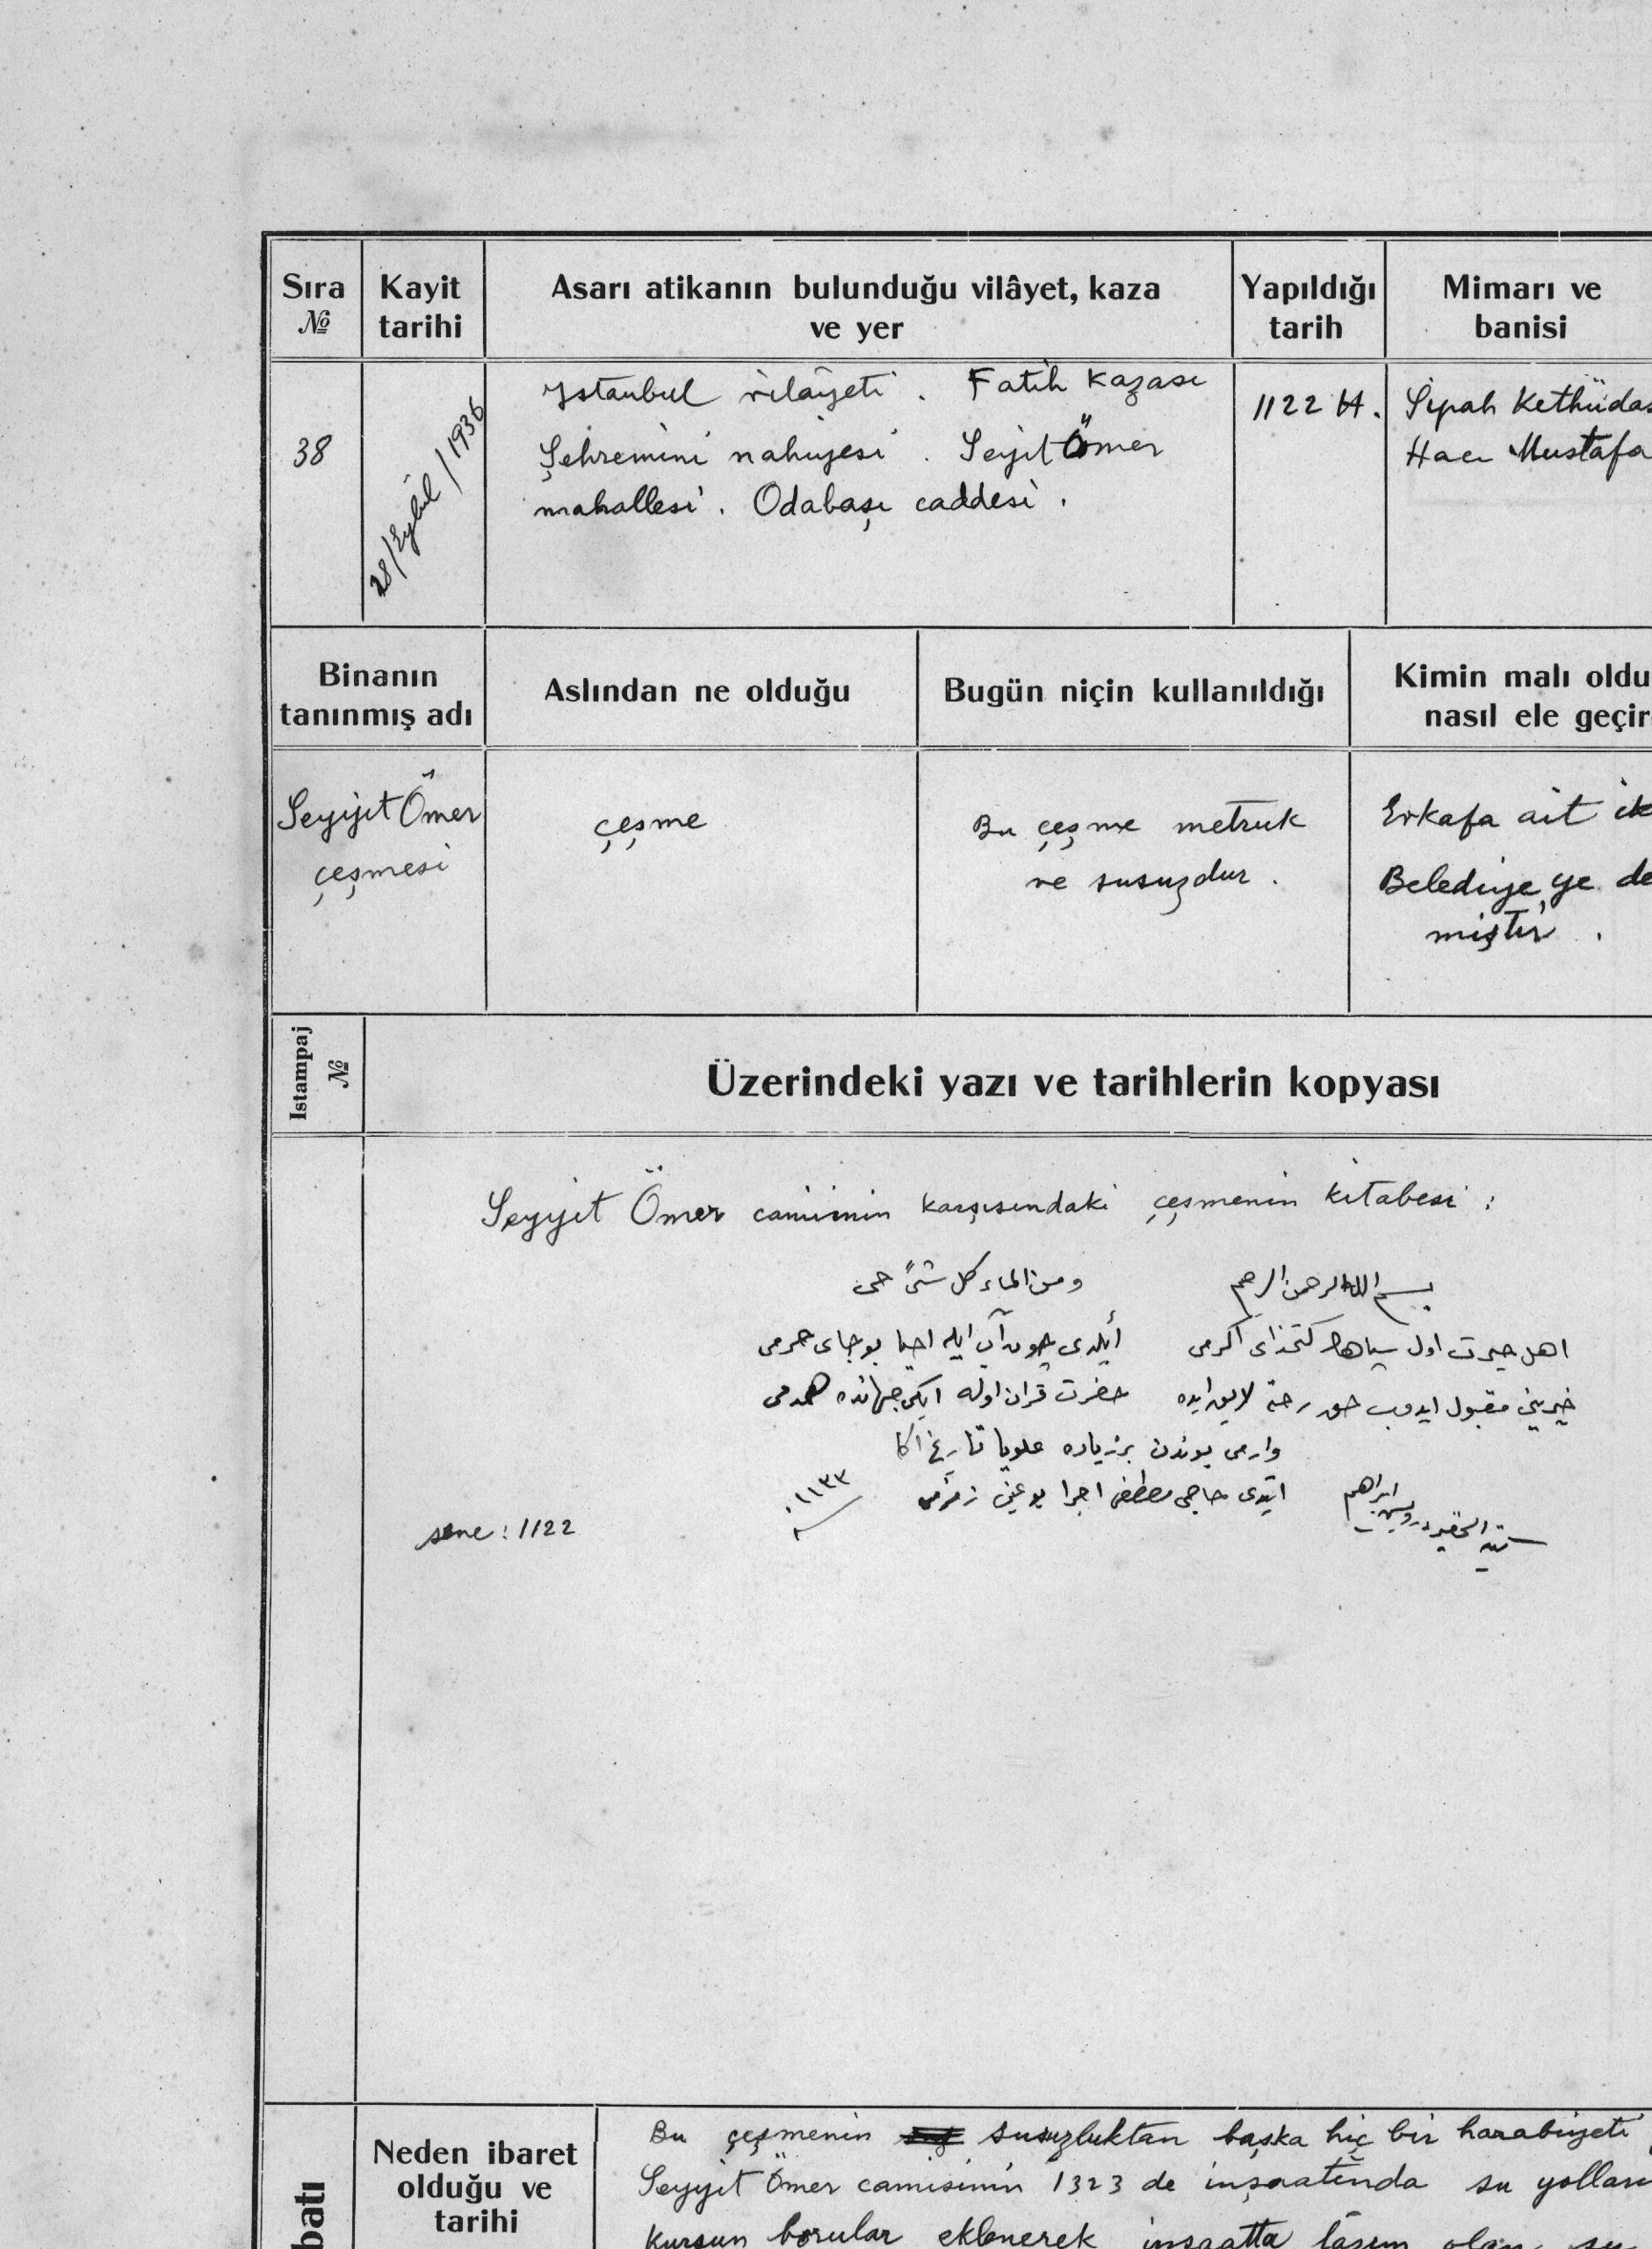 Sıra № Kayit tarihi Asarı atikanın bulunduğu vilâyet, kaza ve yer Yapıldığı tarih Mimarı ve banisi
38
28/Eylûl/1936
Istanbul vilâyeti . Fatih Kazası
Şehremini nahiyesi . Seyit Ömer
mahallesi . Odabaşı caddesi .
1122 H.
Sipah Kethüdas
Hacı Mustafa
Binanın tanınmış adı Aslından ne olduğu Bugün niçin kullanıldığı Kimin malı oldu
nasıl ele geçir
Seyyit Ömer
çeşmesi
çeşme
Bu çeşme metruk
ve susuzdur .
Evkafa ait ik
Belediye ye de
miştir .
Istampaj №
Üzerindeki yazı ve tarihlerin kopyası
Seyyit Ömer camiinin karşısındaki çeşmenin kitabesi :
بسم الله الرحمن الرحيم ومن الماء كل شئ حى
اهل خيرت اول سپاهلر كتخداى اكرمى ايلدى چون آب ايله احيا بو جاى خرمى
خيرينى مقبول ايدوب حق رحمته لايق ايده حضرت قران اوله ايكى جهانده همدمى
وارمى بوندن بر زياده علويا تاريخ اكا
ايتدى حاجى مصطفى اجرا بو عين زمزمى
سنه ١١٣٣
الحقير درويش ابراهيم
sene : 1122
batı
Neden ibaret
olduğu ve
tarihi
Bu çeşmenin susuzluktan başka hiç bir harabiyeti
Seyyit Ömer camisinin 1323 de inşaatında su yolları
Kurşun borular eklenerek inşaatta lâzım olan su